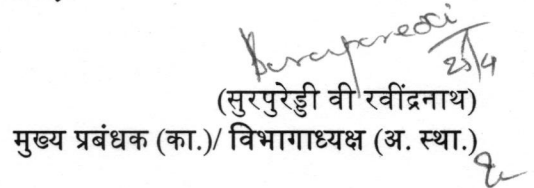 25/4
(सुरपुरेड्डी वी रवींद्रनाथ)
मुख्य प्रबंधक (का.)/ विभागाध्यक्ष (अ. स्था.)